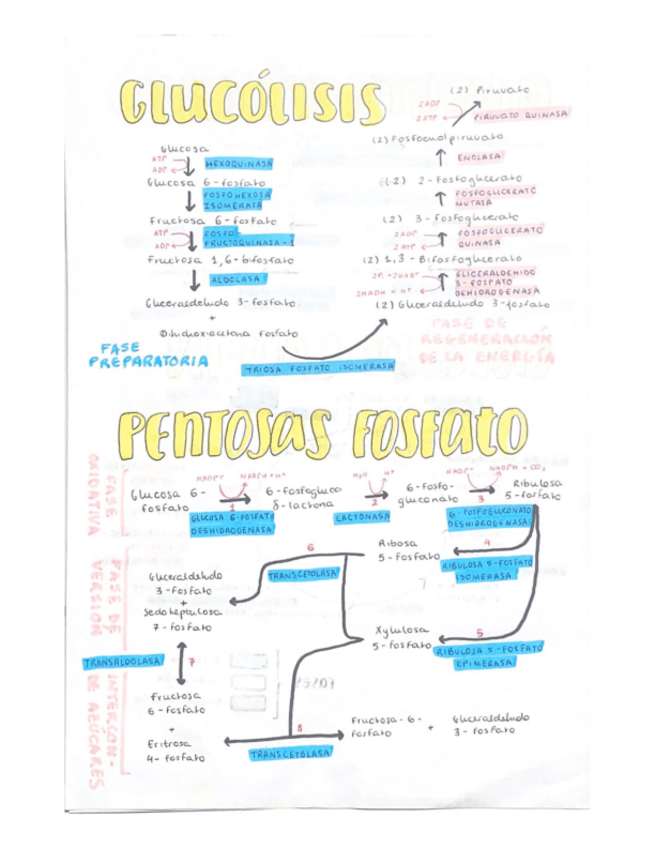 GLUCÓLISIS
Glucosa
ATP
ADP
HEXOQUINASA
Glucosa 6-fosfato
FOSFOHEXOSA
ISOMERASA
Fructosa 6-fosfato
ATP
ADP
FOSFO-
FRUCTOQUINASA-1
Fructosa 1,6-bifosfato
ALDOLASA
Gliceraldehido 3-fosfato
+
Dihidroxiacetona fosfato
FASE
PREPARATORIA
TRIOSA FOSFATO ISOMERASA
(2) Gliceraldehido 3-fosfato
GLICERALDEHIDO
3-FOSFATO
DEHIDROGENASA
(2) 1,3-Bifosfoglicerato
2ADP
2ATP
FOSFOGLICERATO
QUINASA
(2) 3-Fosfoglicerato
FOSFOGLICERATO
MUTASA
(2) 2-Fosfoglicerato
ENOLASA
(2) Fosfoenolpiruvato
2ADP
2ATP
PIRUVATO QUINASA
(2) Piruvato
FASE DE
REGENERACIÓN
DE LA ENERGÍA
PENTOSAS FOSFATO
FASE
OXIDATIVA
Glucosa 6-
fosfato
NADP+
NADPH + H+
1
GLUCOSA 6-FOSFATO
DESHIDROGENASA
6-fosfogluco
δ-lactona
H2O
H+
2
LACTONASA
6-fosfo-
gluconato
NADP+
NADPH + CO2
3
6-FOSFOGLUCONATO
DESHIDROGENASA
Ribulosa
5-fosfato
FASE DE INTERCON-
VERSIÓN DE AZÚCARES
4
RIBULOSA 5-FOSFATO
ISOMERASA
Ribosa
5-fosfato
5
RIBULOSA 5-FOSFATO
EPIMERASA
Xylulosa
5-fosfato
6
TRANSCETOLASA
Gliceraldehido
3-fosfato
+
Sedoheptulosa
7-fosfato
TRANSALDOLASA
7
Fructosa
6-fosfato
+
Eritrosa
4-fosfato
8
TRANSCETOLASA
Fructosa-6-
fosfato
+
Gliceraldehido
3-fosfato